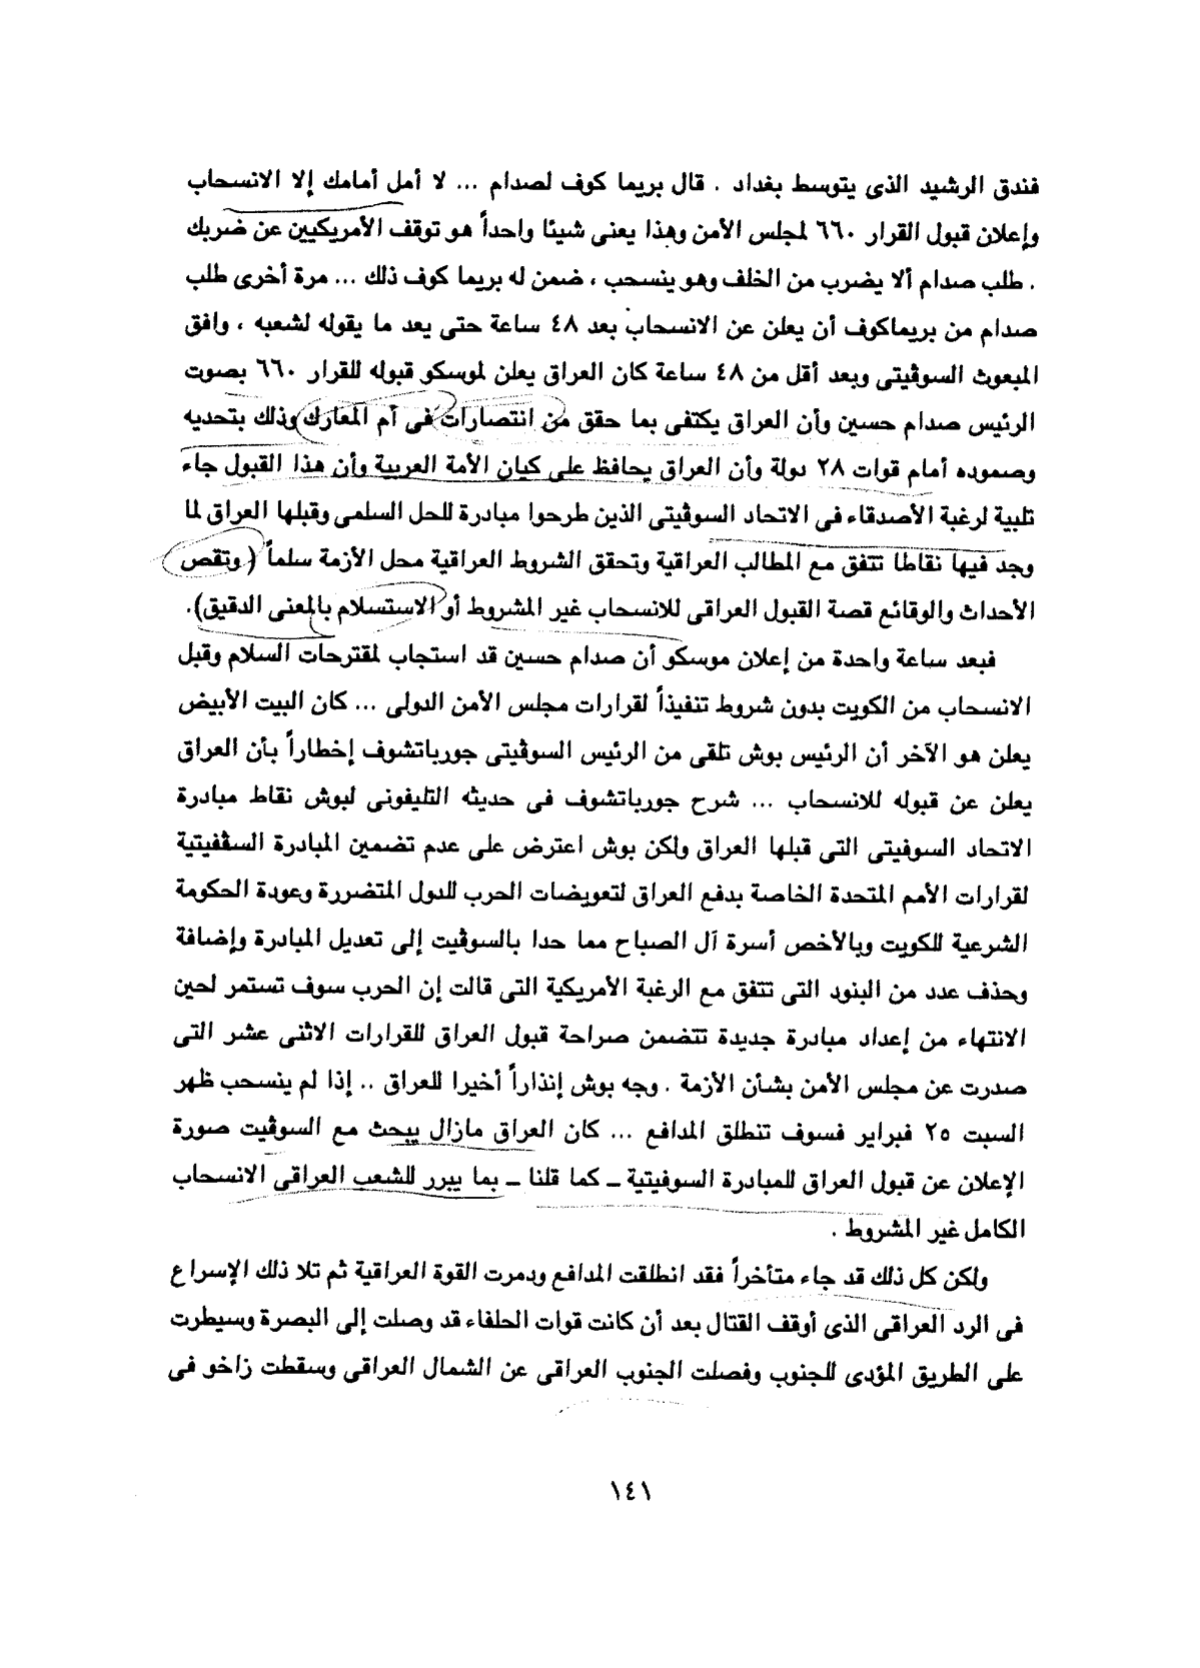 فندق الرشيد الذى يتوسط بغداد . قال بريما كوف لصدام ... لا أمل أمامك إلا الانسحاب
وإعلان قبول القرار ٦٦٠ لمجلس الأمن وهذا يعنى شيئا واحداً هو توقف الأمريكيين عن ضربك
. طلب صدام ألا يضرب من الخلف وهو ينسحب ، ضمن له بريما كوف ذلك ... مرة أخرى طلب
صدام من بريماكوف أن يعلن عن الانسحاب بعد ٤٨ ساعة حتى يعد ما يقوله لشعبه ، وافق
المبعوث السوڤيتى وبعد أقل من ٤٨ ساعة كان العراق يعلن لموسكو قبوله للقرار ٦٦٠ بصوت
الرئيس صدام حسين وأن العراق يكتفى بما حقق من انتصارات فى أم المعارك وذلك بتحديه
وصموده أمام قوات ٢٨ دولة وأن العراق يحافظ على كيان الأمة العربية وأن هذا القبول جاء
تلبية لرغبة الأصدقاء فى الاتحاد السوڤيتى الذين طرحوا مبادرة للحل السلمى وقبلها العراق لما
وجد فيها نقاطا تتفق مع المطالب العراقية وتحقق الشروط العراقية محل الأزمة سلماً ( وتقص
الأحداث والوقائع قصة القبول العراقى للانسحاب غير المشروط أو الاستسلام بالمعنى الدقيق).
فبعد ساعة واحدة من إعلان موسكو أن صدام حسين قد استجاب لمقترحات السلام وقبل
الانسحاب من الكويت بدون شروط تنفيذاً لقرارات مجلس الأمن الدولى ... كان البيت الأبيض
يعلن هو الآخر أن الرئيس بوش تلقى من الرئيس السوڤيتى جورباتشوف إخطاراً بأن العراق
يعلن عن قبوله للانسحاب ... شرح جورباتشوف فى حديثه التليفونى لبوش نقاط مبادرة
الاتحاد السوفيتى التى قبلها العراق ولكن بوش اعترض على عدم تضمين المبادرة السڤفيتية
لقرارات الأمم المتحدة الخاصة بدفع العراق لتعويضات الحرب للدول المتضررة وعودة الحكومة
الشرعية للكويت وبالأخص أسرة آل الصباح مما حدا بالسوڤيت إلى تعديل المبادرة وإضافة
وحذف عدد من البنود التى تتفق مع الرغبة الأمريكية التى قالت إن الحرب سوف تستمر لحين
الانتهاء من إعداد مبادرة جديدة تتضمن صراحة قبول العراق للقرارات الاثنى عشر التى
صدرت عن مجلس الأمن بشأن الأزمة . وجه بوش إنذاراً أخيرا للعراق .. إذا لم ينسحب ظهر
السبت ٢٥ فبراير فسوف تنطلق المدافع ... كان العراق مازال يبحث مع السوڤيت صورة
الإعلان عن قبول العراق للمبادرة السوفيتية ــ كما قلنا ــ بما يبرر للشعب العراقى الانسحاب
الكامل غير المشروط .
ولكن كل ذلك قد جاء متأخراً فقد انطلقت المدافع ودمرت القوة العراقية ثم تلا ذلك الإسراع
فى الرد العراقى الذى أوقف القتال بعد أن كانت قوات الحلفاء قد وصلت إلى البصرة وسيطرت
على الطريق المؤدى للجنوب وفصلت الجنوب العراقى عن الشمال العراقى وسقطت زاخو فى
١٤١